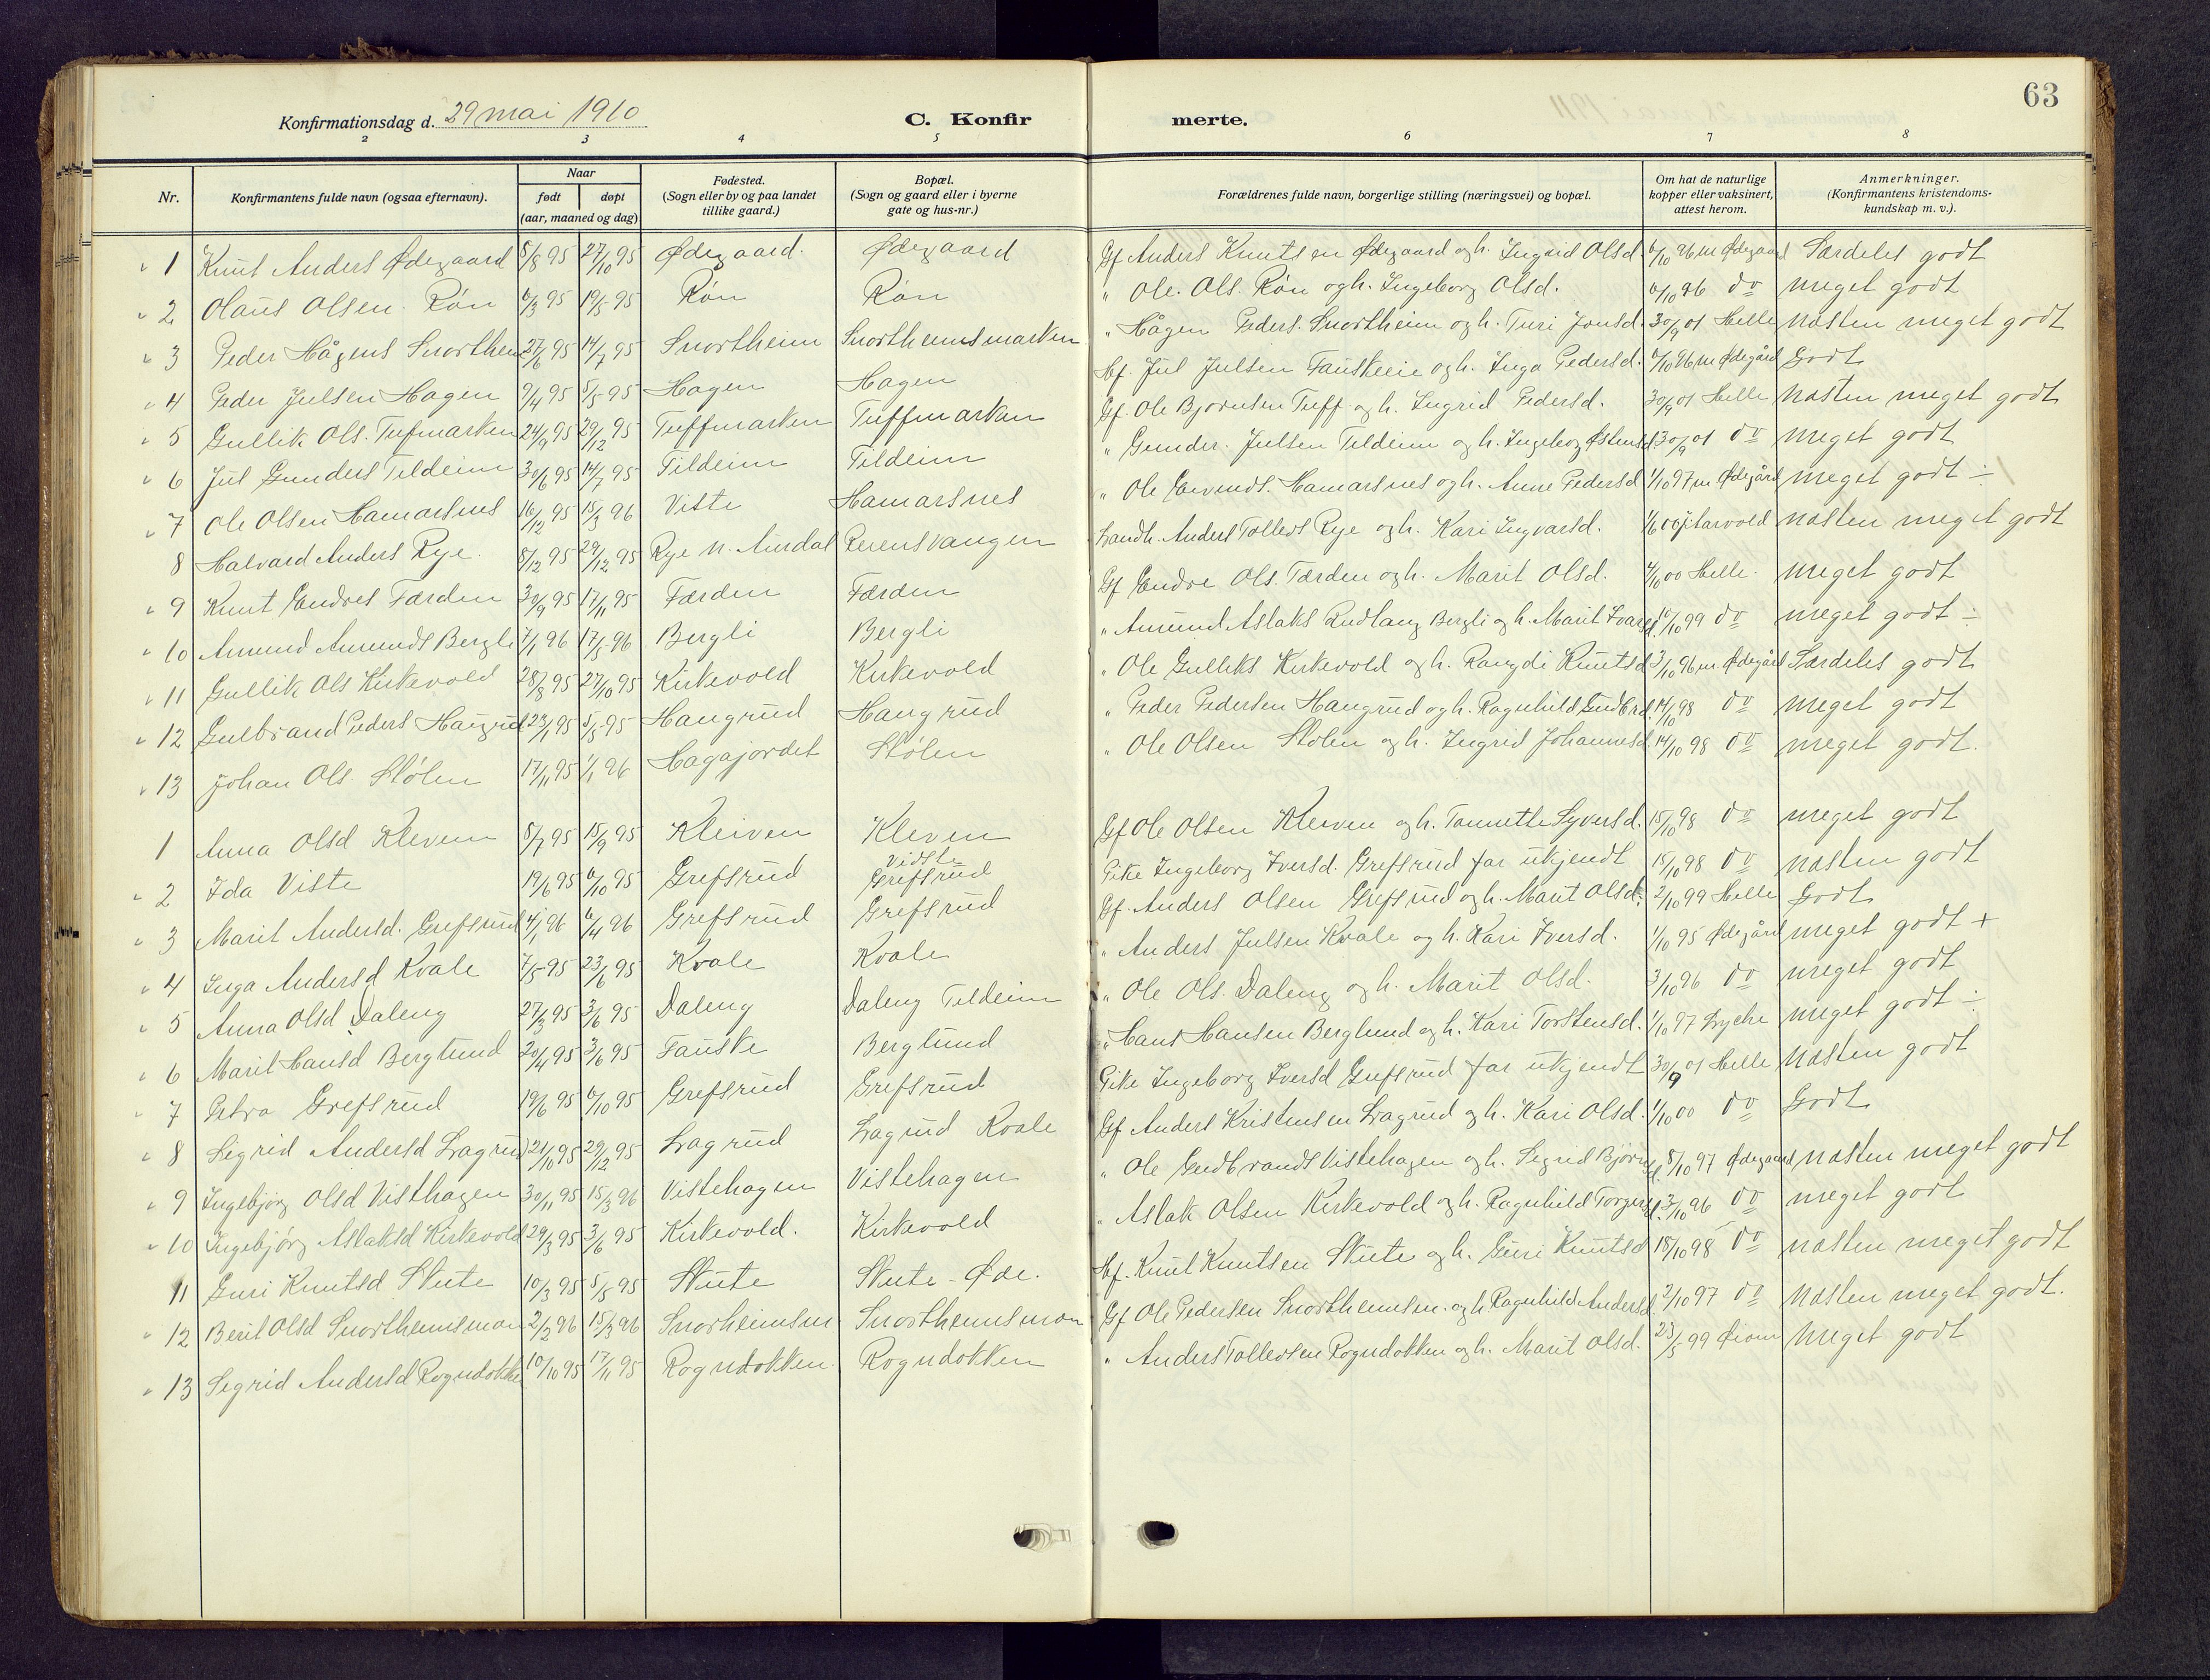 63
Konfirmationsdag d. 29 mai 1910 C. Konfir merte.
2 3 4 5 6 7 8
Nr. Konfirmantens fulde navn (ogsaa efternavn). Naar født døpt (aar, maaned og dag) Fødested. (Sogn eller by og paa landet tillike gaard.) Bopæl. (Sogn og gaard eller i byerne gate og hus-nr.) Forældrenes fulde navn, borgerlige stilling (næringsvei) og bopæl. Om hat de naturlige kopper eller vaksinert, attest herom. Anmerkninger. (Konfirmantens kristendoms- kundskap m. v.).
1 Knut Anders Ødegaard 8/8 95 27/10 95 Ødegaard. Ødegaard Gf Anders Knutsen Ødegaard og h. Ingrid Olsd. 6/10 96 m Ødegaard Særdeles godt
2 Olaus Olsen Røn 6/3 95 19/5 95 Røn Røn " Ole. Ols. Røn og h. Ingeborg Olsd. 6/10 96 do meget godt
3 Peder Hågens Snortheim 27/6 95 14/7 95 Snortheim Snortheimsmarken " Hågen Peders. Snortheim og h. Turi Jonsd. 30/9 01 Helle næsten meget godt
4 Peder Julsen Hagen 9/4 95 5/5 95 Hagen Hagen Hf. Jul Julsen Fauskeeie og h. Inga Pedersd. 6/10 96 m Ødegård Godt
5 Gullik Ols. Tufmarken 24/9 95 29/12 95 Tuffmarken Tuffmarken Gf. Ole Bjørnsen Tuff og h. Ingrid Pedersd. 30/9 01 Helle næsten meget godt
6 Jul Gunders Tildeim 30/6 95 14/7 95 Tildeim Tildeim " Gunder. Julsen Tildeim og h. Ingeborg Østensd. 30/9 01 do meget godt
7 Ole Olsen Hamarsnes 16/12 95 15/3 96 Viste Hamarsnes " Ole Eivinds. Hamarsnes og h. Anne Pedersd 1/10 97 m Ødegård meget godt ÷
8 Halvard Anders Rye. 8/12 95 29/12 95 Rye N. Aurdal Reiensvangen Landh. Anders Tolleos Rye og h. Kari Ingvarsd. næsten meget godt
9 Knut Endres Færden 30/9 95 17/11 95 Færden Færden Gf Endre Ols. Færden og h. Marit Olsd. 4/10 00 Helle. meget godt
10 Amund Amunds Bergli 7/1 96 17/5 96 Bergli Bergli " Amund Aslaks Ludlang Bergli og h. Marit Ivarsd. 10/10 99 do meget godt ÷
11 Gullik Ols Kirkevold 28/8 95 27/10 95 Kirkevold Kirkevold " Ole Gulliks Kirkevold og h. Rangdi Knutsd 3/10 96 m Ødegård Særdeles godt
12 Gulbrand Peders Haugrud 23/1 95 5/5 95 Haugrud Haugrud " Peder Pedersen Haugrud og h. Ragnhild Gudbrd. 14/10 98 do meget godt
13 Johan Ols. Stølen 17/11 95 1/1 96 Hagajordet Stølen " Ole Olsen Stølen og h. Ingrid Johannesd. 14/10 98 do meget godt.
1 Anna Olsd Kleven 8/7 95 15/9 95 Kleiven Kleven Gf Ole Olsen Kleiven og h. Tannette Syversd. 15/10 98 do meget godt
2 Ida Viste 19/6 95 6/10 95 Grefsrud Vidste Grefsrud Pike Ingeborg Iversd. Grefsrud far ukjendt 15/10 98 do næsten godt
3 Marit Andersd. Grefsrud 4/1 96 6/4 96 Grefsrud Grefsrud Gf. Anders Olsen Grefsrud og h. Marit Olsd. 2/10 99 Helle Godt
4 Inga Andersd Kvale 7/5 95 23/6 95 Kvale Kvale " Anders Julsen Kvale og h. Kari Iversd. 1/10 95 Ødegård meget godt +
5 Anna Olsd Daleng 27/3 95 3/6 95 Daleng Daleng Tildeim " Ole Ols. Daleng og h. Marit Olsd. 3/10 96 do meget godt
6 Marit Hansd Berglund 20/4 95 3/6 95 Fauske Berglund " Hans Hansen Berglund og h. Kari Torstensd. 1/10 97 Lyche meget godt ÷
7 Petra Grefsrud 19/6 95 6/10 95 Grefsrud Grefsrud Pike Ingeborg Iversd Grefsrud far ukjendt 30/9 01 Helle næsten godt
8 Sigrid Andersd Lagrud 21/10 95 29/12 95 Lagrud Lagrud Kvale Gf Anders Kristensen Lagrud og h. Kari Olsd. 1/10 00 do Godt
9 Ingebjørg Olsd Visthagen 30/11 95 15/3 96 Vistehagen Vistehagen " Ole Gudbrands Vistehagen og h. Sigrid Bjørnsd. 8/10 97 Ødegaard næsten meget godt
10 Ingebjørg Aslaksd Kirkevold 29/3 95 3/6 95 Kirkevold. Kirkevold " Aslak Olsen Kirkevold og h. Ragnhild Torgersd. 3/10 96 do meget godt
11 Guri Knutsd Skute 10/3 95 5/5 95 Skute Skute - Øde. Hf. Knut Knutsen Skute og h. Guri Knutsd 18/10 98 do næsten meget godt
12 Berit Olsd Snortheimsmoen 2/2 96 15/3 96 Snorheimsm Snortheimsmoen Gf Ole Pedersen Snortheimsm. og h. Ragnhild Andersd. 2/10 97 do næsten meget godt.
13 Sigrid Andersd Rogndokken 10/10 95 17/11 95 Rogndokken. Rogndokken " Anders Tollevsen Rogndokken og h. Marit Olsd. 23/5 99 meget godt